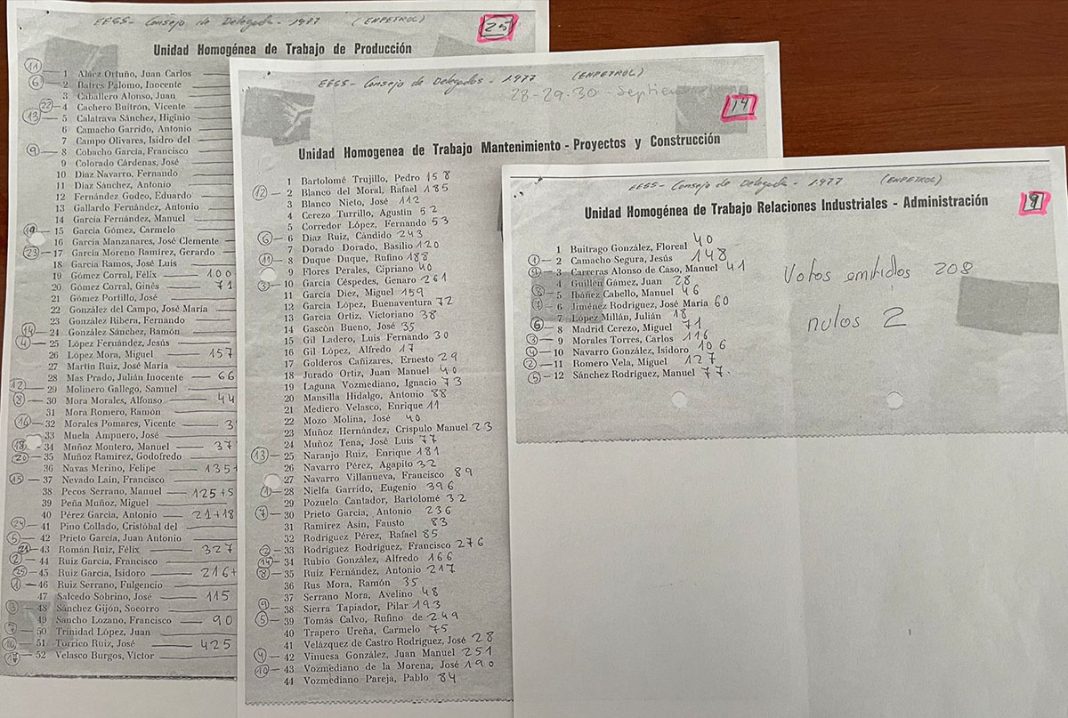 EEGS - Consejo de Delegados - 1977 (ENPETROL)
25
Unidad Homogénea de Trabajo de Producción
11
1 Alúez Ortuño, Juan Carlos
6 2 Batres Palomo, Inocente
3 Caballero Alonso, Juan
22 4 Cachero Buitrón, Vicente
13 5 Calatrava Sánchez, Higinio
6 Camacho Garrido, Antonio
7 Campo Olivares, Isidro del
9 8 Cobacho García, Francisco
9 Colorado Cárdenas, José
10 Díaz Navarro, Fernando
11 Díaz Sánchez, Antonio
12 Fernández Godeo, Eduardo
13 Gallardo Fernández, Antonio
14 García Fernández, Manuel
15 García Gómez, Carmelo
16 García Manzanares, José Clemente
23 17 García Moreno Ramírez, Gerardo
18 García Ramos, José Luis
19 Gómez Corral, Félix 100
20 Gómez Corral, Ginés 71
21 Gómez Portillo, José
22 González del Campo, José María
23 González Ribera, Fernando
14 24 González Sánchez, Ramón
4 25 López Fernández, Jesús
26 López Mora, Miguel 157
27 Martín Ruiz, José María
28 Mas Prado, Julián Inocente 66
12 29 Molinero Gallego, Samuel
8 30 Mora Morales, Alfonso 44
31 Mora Romero, Ramón
16 32 Morales Pomares, Vicente
33 Muela Ampuero, José
18 34 Muñoz Montero, Manuel 37
20 35 Muñoz Ramírez, Godofredo
36 Navas Merino, Felipe 135+
15 37 Nevado Laín, Francisco
38 Pecos Serrano, Manuel 125+5
39 Peña Muñoz, Miguel
40 Pérez García, Antonio 21+18
24 41 Pino Collado, Cristóbal del
5 42 Prieto García, Juan Antonio
21 43 Román Ruiz, Félix 327
2 44 Ruiz García, Francisco
25 45 Ruiz García, Isidoro 216+
1 46 Ruiz Serrano, Fulgencio
47 Salcedo Sobrino, Jose 115
3 48 Sánchez Gijón, Socorro
49 Sancho Lozano, Francisco 90
7 50 Trinidad López, Juan
10 51 Torrico Ruiz, José 425
52 Velasco Burgos, Víctor
EEGS - Consejo de Delegados - 1977 (ENPETROL)
28-29-30 - Septiembre
14
Unidad Homogenea de Trabajo Mantenimiento - Proyectos y Construcción
1 Bartolomé Trujillo, Pedro 158
12 2 Blanco del Moral, Rafael 185
3 Blanco Nieto, José 112
4 Cerezo Turrillo, Agustín 52
5 Corredor López, Fernando 53
6 6 Díaz Ruiz, Cándido 243
7 Dorado Dorado, Basilio 120
11 8 Duque Duque, Rufino 188
9 Flores Perales, Cipriano 40
3 10 García Céspedes, Genaro 261
11 García Díez, Miguel 159
12 García López, Buenaventura 72
13 García Ortiz, Victoriano 38
14 Gascón Bueno, José 35
15 Gil Ladero, Luis Fernando 30
16 Gil López, Alfredo 17
17 Golderos Cañizares, Ernesto 29
18 Jurado Ortiz, Juan Manuel 40
19 Laguna Vozmediano, Ignacio 73
20 Mansilla Hidalgo, Antonio 88
21 Mediero Velasco, Enrique 11
22 Mozo Molina, José 40
23 Muñoz Hernández, Críspulo Manuel 23
24 Muñoz Tena, José Luis 77
13 25 Naranjo Ruiz, Enrique 181
26 Navarro Pérez, Agapito 32
27 Navarro Villanueva, Francisco 89
1 28 Nielfa Garrido, Eugenio 396
29 Pozuelo Cantador, Bartolomé 32
7 30 Prieto García, Antonio 236
31 Ramírez Asín, Fausto 83
32 Rodríguez Pérez, Rafael 85
2 33 Rodríguez Rodríguez, Francisco 276
14 34 Rubio González, Alfredo 166
8 35 Ruiz Fernández, Antonio 217
36 Rus Mora, Ramón 35
37 Serrano Mora, Avelino 48
9 38 Sierra Tapiador, Pilar 193
5 39 Tomás Calvo, Rufino de 249
40 Trapero Ureña, Carmelo 75
41 Velázquez de Castro Rodríguez, José 28
4 42 Vinuesa González, Juan Manuel 251
10 43 Vozmediano de la Morena, José 190
44 Vozmediano Pareja, Pablo 84
EEGS - Consejo de Delegados - 1977 (ENPETROL)
9
Unidad Homogénea de Trabajo Relaciones Industriales - Administración
1 Buitrago González, Floreal 40
1 2 Camacho Segura, Jesús 148
3 Carreras Alonso de Caso, Manuel 41
4 Guillén Gámez, Juan 28
5 Ibáñez Cabello, Manuel 46
6 Jiménez Rodríguez, José María 60
7 López Millán, Julián 18
6 8 Madrid Cerezo, Miguel 71
3 9 Morales Torres, Carlos 116
4 10 Navarro González, Isidoro 106
2 11 Romero Vela, Miguel 127
5 12 Sánchez Rodríguez, Manuel 77.
Votos emitidos 208
nulos 2